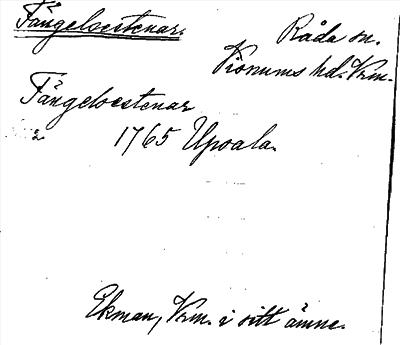 Fångeloestenar.
Råda sn.
Visnums hd. Vrm.
Fångeloestenar
2.
1765 Upsala.
Ekman, Vrm. i sitt ämne.